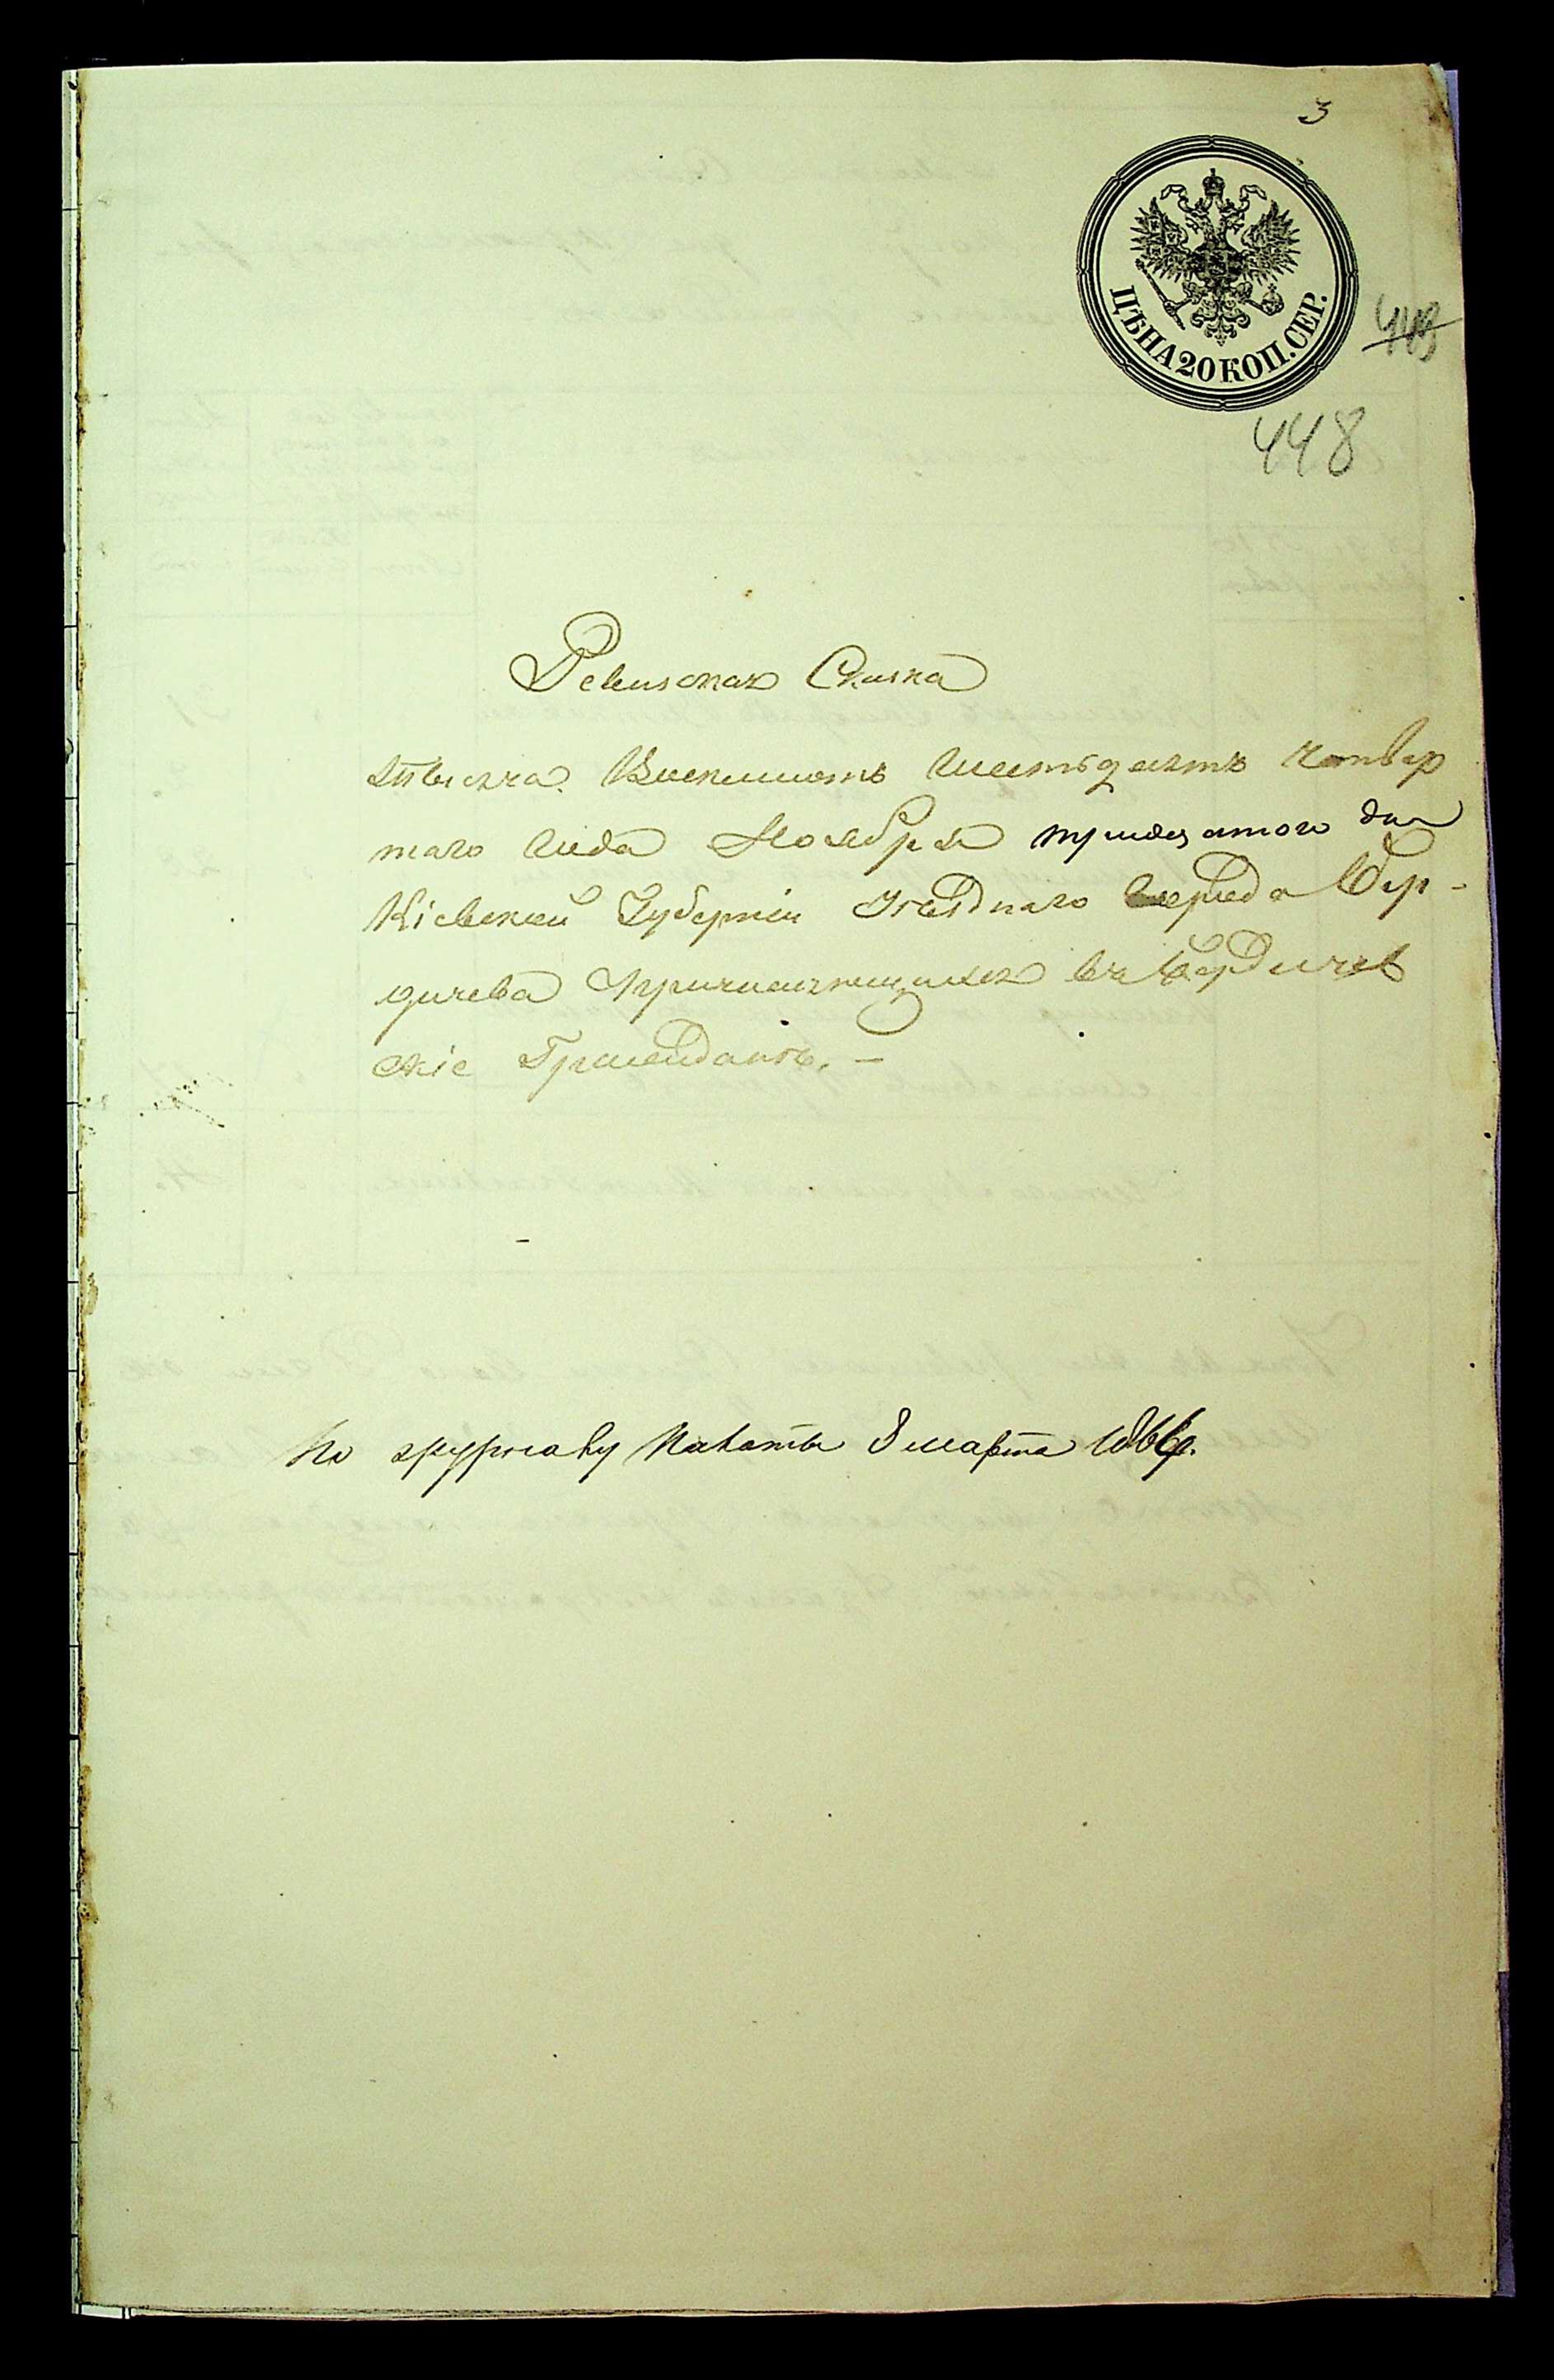 3
ЦѢНА 20 КОП. СЕР.
448
448
Ревизская Сказка
Тысяча Восемьсотъ Шестьдесятъ Четвер
таго Года Ноября тридцатого дня
Кіевской Губерніи Уѣзднаго Города Бер-
дичева Причисляющихся въ Бердичев
скіе Граждане. —
По журналу Палаты 8 марта 1866 г.